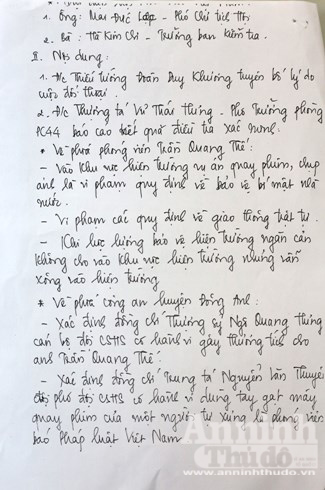 1. Ông: Mai Đức Lộc - Phó Chủ tịch Hội
2. Bà: Hà Kim Chi - Trưởng ban kiểm tra.
II. Nội dung:
1. Đ/c Thiếu tướng Đoàn Duy Khương tuyên bố lý do
cuộc đối thoại.
2. Đ/c Thượng tá Vũ Thái Hưng - Phó Trưởng phòng
PC44 báo cáo kết quả điều tra xác minh:
* Về phía phóng viên Trần Quang Thế:
- Vào khu vực hiện trường vụ án quay phim, chụp
ảnh là vi phạm quy định về bảo vệ bí mật nhà
nước.
- Vi phạm các quy định về giao thông trật tự.
- Khi lực lượng bảo vệ hiện trường ngăn cản
không cho vào khu vực hiện trường nhưng vẫn
xông vào hiện trường.
* Về phía công an huyện Đông Anh:
- Xác định đồng chí Thượng sỹ Ngô Quang Hưng
cán bộ đội CSHS có hành vi gây thương tích cho
anh Trần Quang Thế.
- Xác định đồng chí Trung tá Nguyễn Văn Thuyên
đội phó đội CSHS có hành vi dùng tay gạt máy
quay phim của một người tự xưng là phóng viên
báo Pháp luật Việt Nam
Anninh
Thủ đô
www.anninhthudo.vn